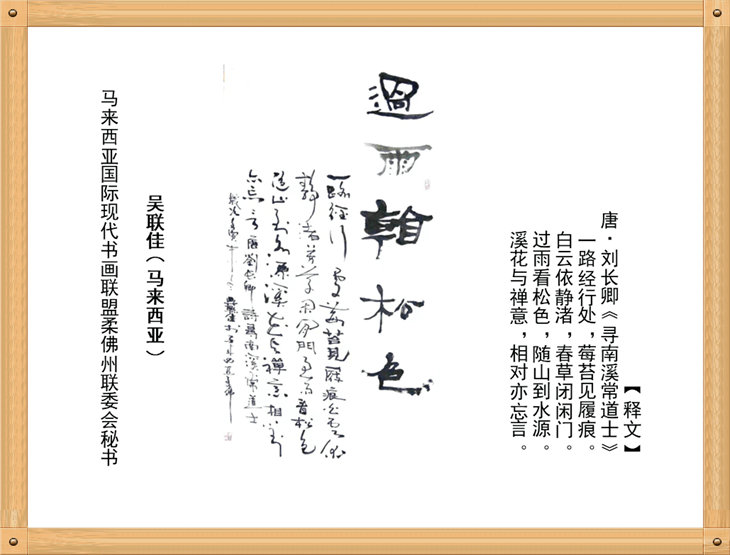 【释文】
唐·刘长卿《寻南溪常道士》
一路经行处，莓苔见履痕。
白云依静渚，春草闭闲门。
过雨看松色，随山到水源。
溪花与禅意，相对亦忘言。
過雨看松色
一路經行處莓苔見履痕白雲依
靜渚芳草閉閒門過雨看松色
隨山到水源溪花与禪意相對
亦忘言唐劉長卿詩尋南溪常道士
吴联佳（马来西亚）
马来西亚国际现代书画联盟柔佛州联委会秘书